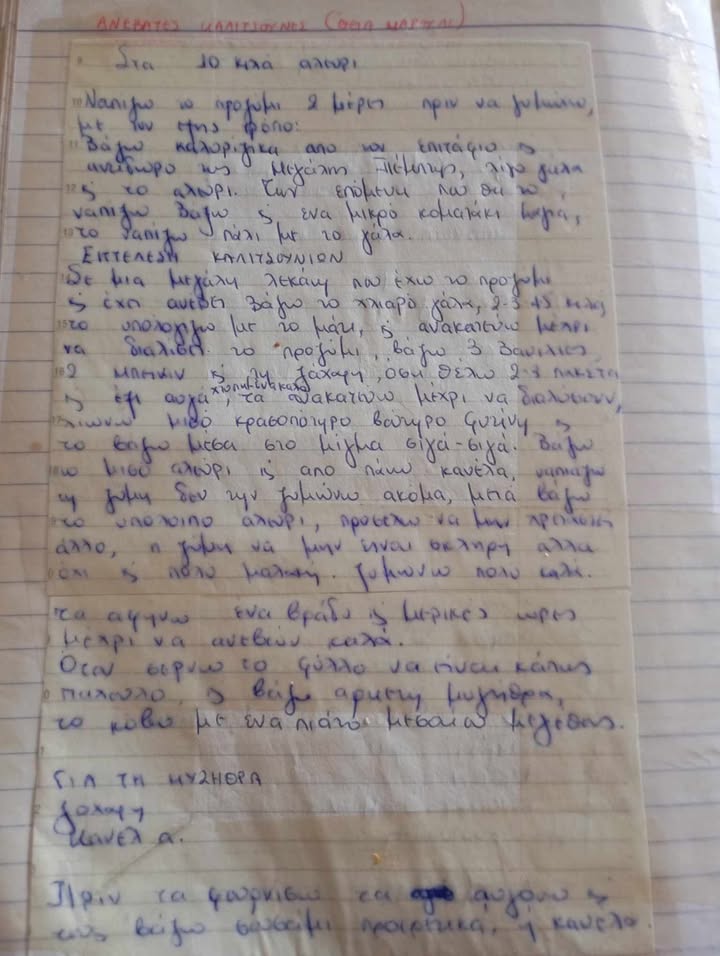 ΑΝΕΒΑΤΕΣ ΚΑΛΙΤΣΟΥΝΕΣ (ΘΕΙΑ
Στα 10 κιλά αλευρι
Ναπιζω το προζυμι 2 μέρες πριν να ζυμώσω,
με τον εξης τροπο:
Βάζω απο τον επιτάφιο ς
αντιδωρο της Μεγάλης Πέμπτης, λίγο γάλα
ς το αλευρι. Την επόμενη που θα το
ναπιζω βάζω ς ενα μικρό κοματάκι μαγιά,
το ναπιζω πάλι με το γάλα.
ΕΚΤΕΛΕΣΗ ΚΑΛΙΤΣΟΥΝΙΩΝ
Σε μια μεγάλη λεκάνη που έχω το προζυμι
ς έχει ανεβει βάζω το χλιαρό γάλα,
το υπολογιζω με το μάτι, ς ανακατευω μέχρι
να διαλυσει το προζύμι, βάζω 3 βανιλιες
2 μπεικιν ς τη ζαχαρη, οση θέλω 2-3 πακετα
χτυπημενα καλα
ς έξι αυγά, τα ανακατευω μέχρι να διαλυσουν,
λιωνω μισό κρασοπότηρο βουτυρο φυτίνη ς
το βαζω μέσα στο μίγμα σιγά-σιγά. Βάζω
το μισο αλευρι ς απο πανω κανελα, ναπιαζω
τη ζυμη δεν την ζυμωνω ακομα, μετά βάζω
το υπολοιπο αλευρι, προσεχω να μην χρειαστει
άλλο, η ζύμη να μην ειναι σκληρη αλλα
όχι ς πολυ μαλακη. Ζυμωνω πολυ καλα.
τα αφηνω ένα βράδυ ς μερικές ωρες
μέχρι να ανεβουν καλά.
Οταν περνω το φύλλο να ειναι κάπως
παχουλο, ς βαζω αρκετη μυζηθρα,
το κοβω με ένα πιάτο μεσαιω μεγεθους.
ΓΙΑ ΤΗ ΜΥΖΗΘΡΑ
ζαχαρη
κανελα.
Πριν τα φουρνισω τα αυγωνω ς
τους βάζω σουσαμι προαιρετικά, ή κανελα.